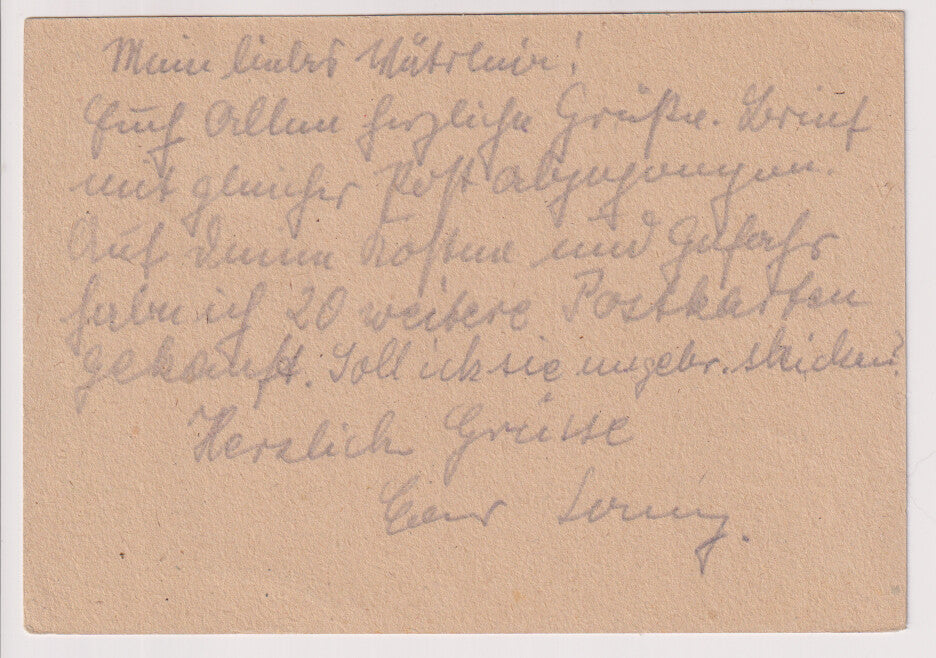 Mein liebes Mütterlein!
Euch Allen herzliche Grüße. Brief
mit gleicher Post abgegangen.
Auf Deine Kosten und Gefahr
habe ich 20 weitere Postkarten
gekauft. Soll ich sie ungebr. schicken?
Herzlich Grüsse
Euer